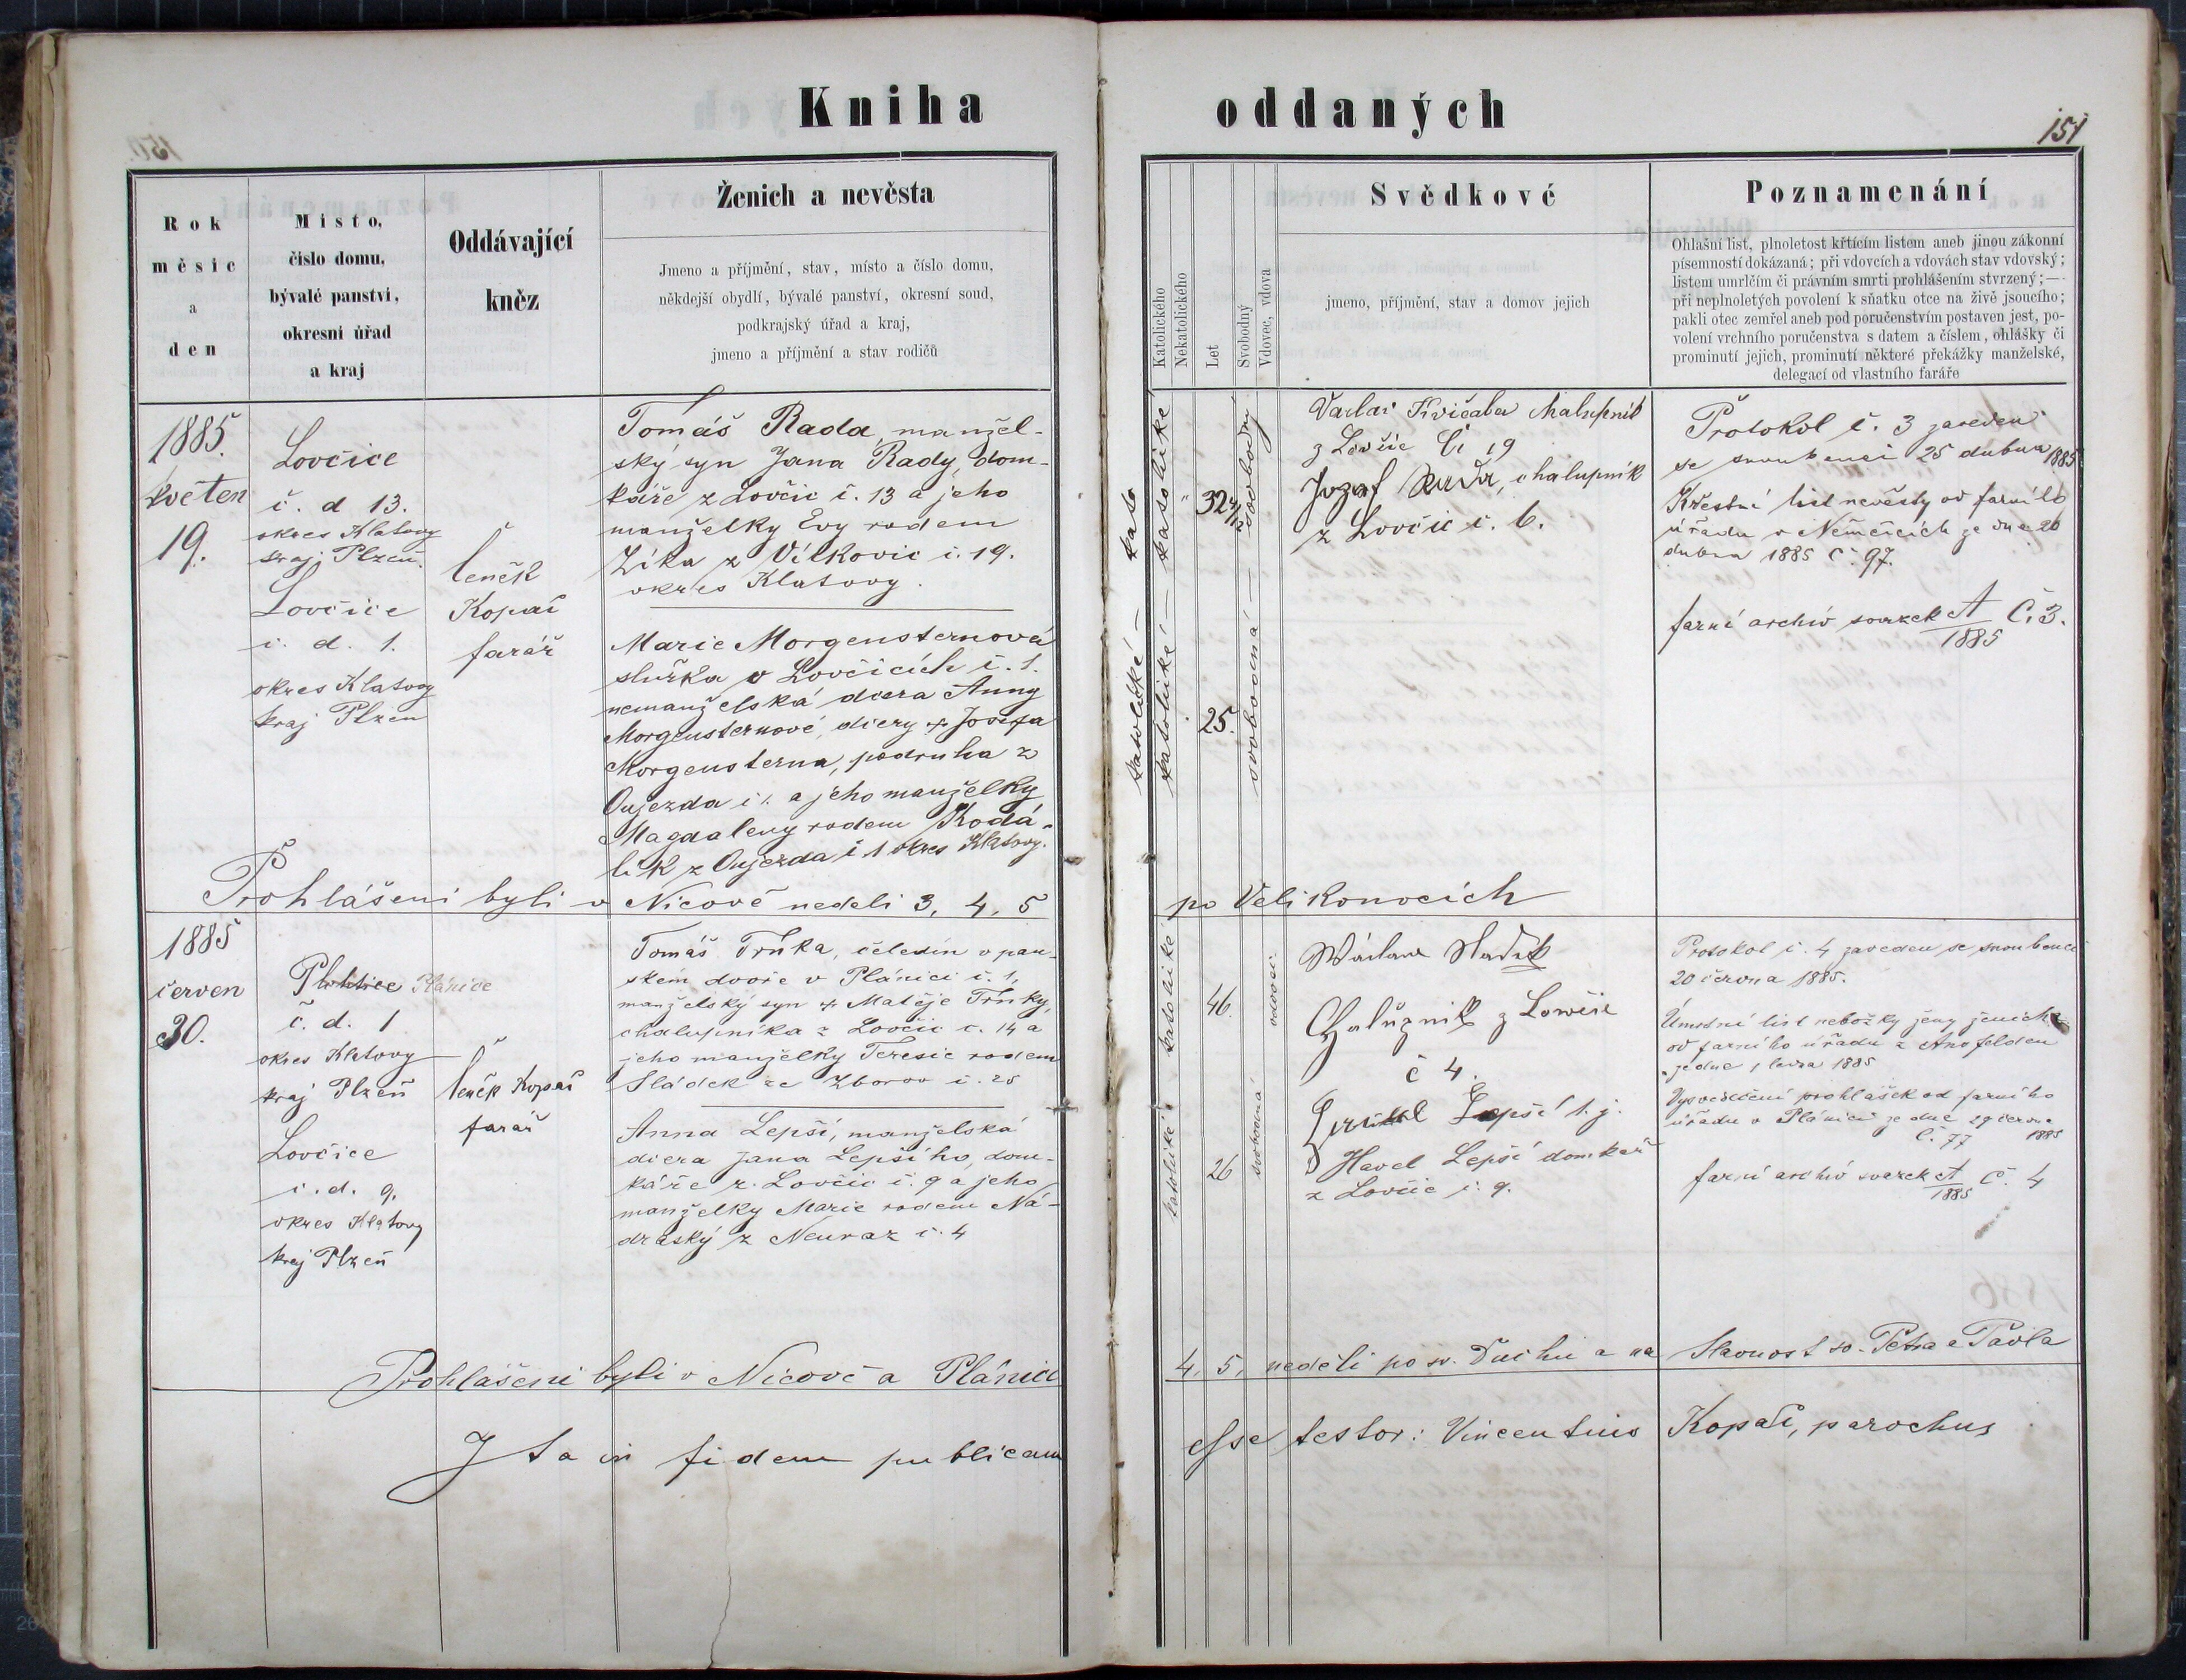 Kniha oddaných
151
Rok
měsíc
a
den
Místo,
číslo domu,
bývalé panství,
okresní úřad
a kraj
Oddávající
kněz
Ženich a nevěsta
Jmeno a příjmění, stav, místo a číslo domu,
někdejší obydlí, bývalé panství, okresní soud,
podkrajský úřad a kraj,
jmeno a příjmění a stav rodičů
Katolického
Nekatolického
Let
Svobodný
Vdovec, vdova
Svědkové
jmeno, příjmění, stav a domov jejich
Poznamenání
Ohlašní list, plnoletost křticím listem aneb jinou zákonní
písemností dokázaná; při vdovcích a vdovách stav vdovský;
listem umrlčím či právním smrti prohlášením stvrzený;—
při neplnoletých povolení k sňatku otce na živě jsoucího;
pakli otec zemřel aneb pod poručenstvím postaven jest, po-
volení vrchního poručenstva s datem a číslem, ohlášky či
prominutí jejich, prominutí některé překážky manželské,
delegací od vlastního faráře
1885.
květen
19.
Lovčice
č. d 13.
okres Klatovy
kraj Plzeň.
Lovčice
č. d. 1.
okres Klatovy
kraj Plzeň
Čeněk
Kopač
farář
Tomáš Rada, manžel-
ský syn Jana Rady, dom-
káře z Lovčic č. 13 a jeho
manželky Evy rodem
Zíka z Vítkovic č. 19.
okres Klatovy.
Marie Morgensternová
služka v Lovčicích č. 1.
nemanželská dcera Anny
Morgensternové, dcery + Josefa
Morgensterna, podruha z
Oujezda č 1. a jeho manželky
Magdaleny rodem Kodá-
lík z Oujezda č 1 okres Klatovy.
katolické
katolické
32
svobodný
25.
svobodná
Václav Kvičala Chalupník
z Lovčic Čí 19
Jozef Rada, chalupník
z Lovčic č. 6.
Protokol č. 3 zaveden
se snoubenci 25 dubna 1885
Křestní list nevěsty od farního
úřadu v Němčicích ze dne 20
dubna 1885 č. 97.
farní archiv svazek A/1885 Č. 3.
Prohlášeni byli v Nicově neděli 3. 4. 5 po Velikonocích
1885
červen
30.
Plánice
č. d. 1
okres Klatovy
kraj Plzeň
Lovčice
č. d. 9.
okres Klatovy
kraj Plzeň
Čeněk Kopač
farář
Tomáš Trnka, čeledín v pan-
ském dvoře v Plánici č. 1,
manželský syn + Matěje Trnky,
chalupníka z Lovčic č. 14 a
jeho manželky Teresie rodem
Sládek ze Zborov č. 25
Anna Lepší, manželská
dcera Jana Lepšího, dom-
káře z Lovčic č. 9 a jeho
manželky Marie rodem Ná-
draský z Neuraz č. 4
katolické
46.
vdovec
katolické
26
svobodná
Wáclaw Sladek
Chalupnik z Lowčic
č 4.
Lepší 1. j.
Havel Lepší domkař
z Lovčic č. 9.
Protokol č. 4 zaveden se snoubenci
20 června 1885.
Úmrtní list nebožky ženy ženicha
od farního úřadu z Arnfelden
ze dne 1 ledna 1885
Vysvědčení prohlášek od farního
úřadu v Plánici ze dne 29 června
Č. 77 1885
farní archiv svazek A/1885 Č. 4
Prohlášeni byli v Nicově a Plánici 4. 5. neděli po sv. Duchu a na Slavnost sv. Petra a Pavla
Ita in fidem publicam esse testor: Vincentius Kopač, parochus